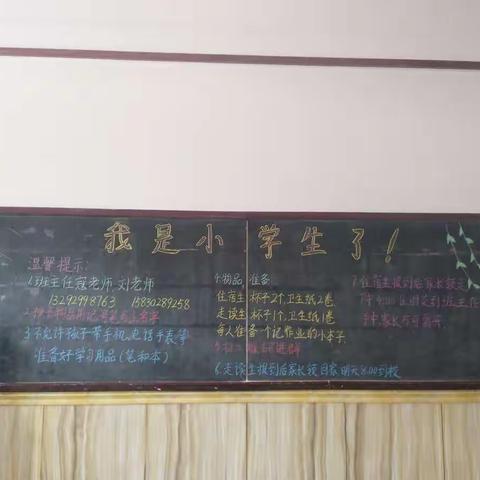 我是小学生了！
温馨提示:
1.班主任寇老师 刘老师
13292998763 15830289258
3.不允许孩子带手机,电话手表等
准备好学习用品(笔和本)
4.物品准备
住宿生 杯子2个,卫生纸2卷
走读生 杯子1个,卫生纸1卷
每人准备个记作业的小本子.
6.走读生报到后家长领回家明天8:00到校
7.住宿生报到后家长领走
家长方可离开.